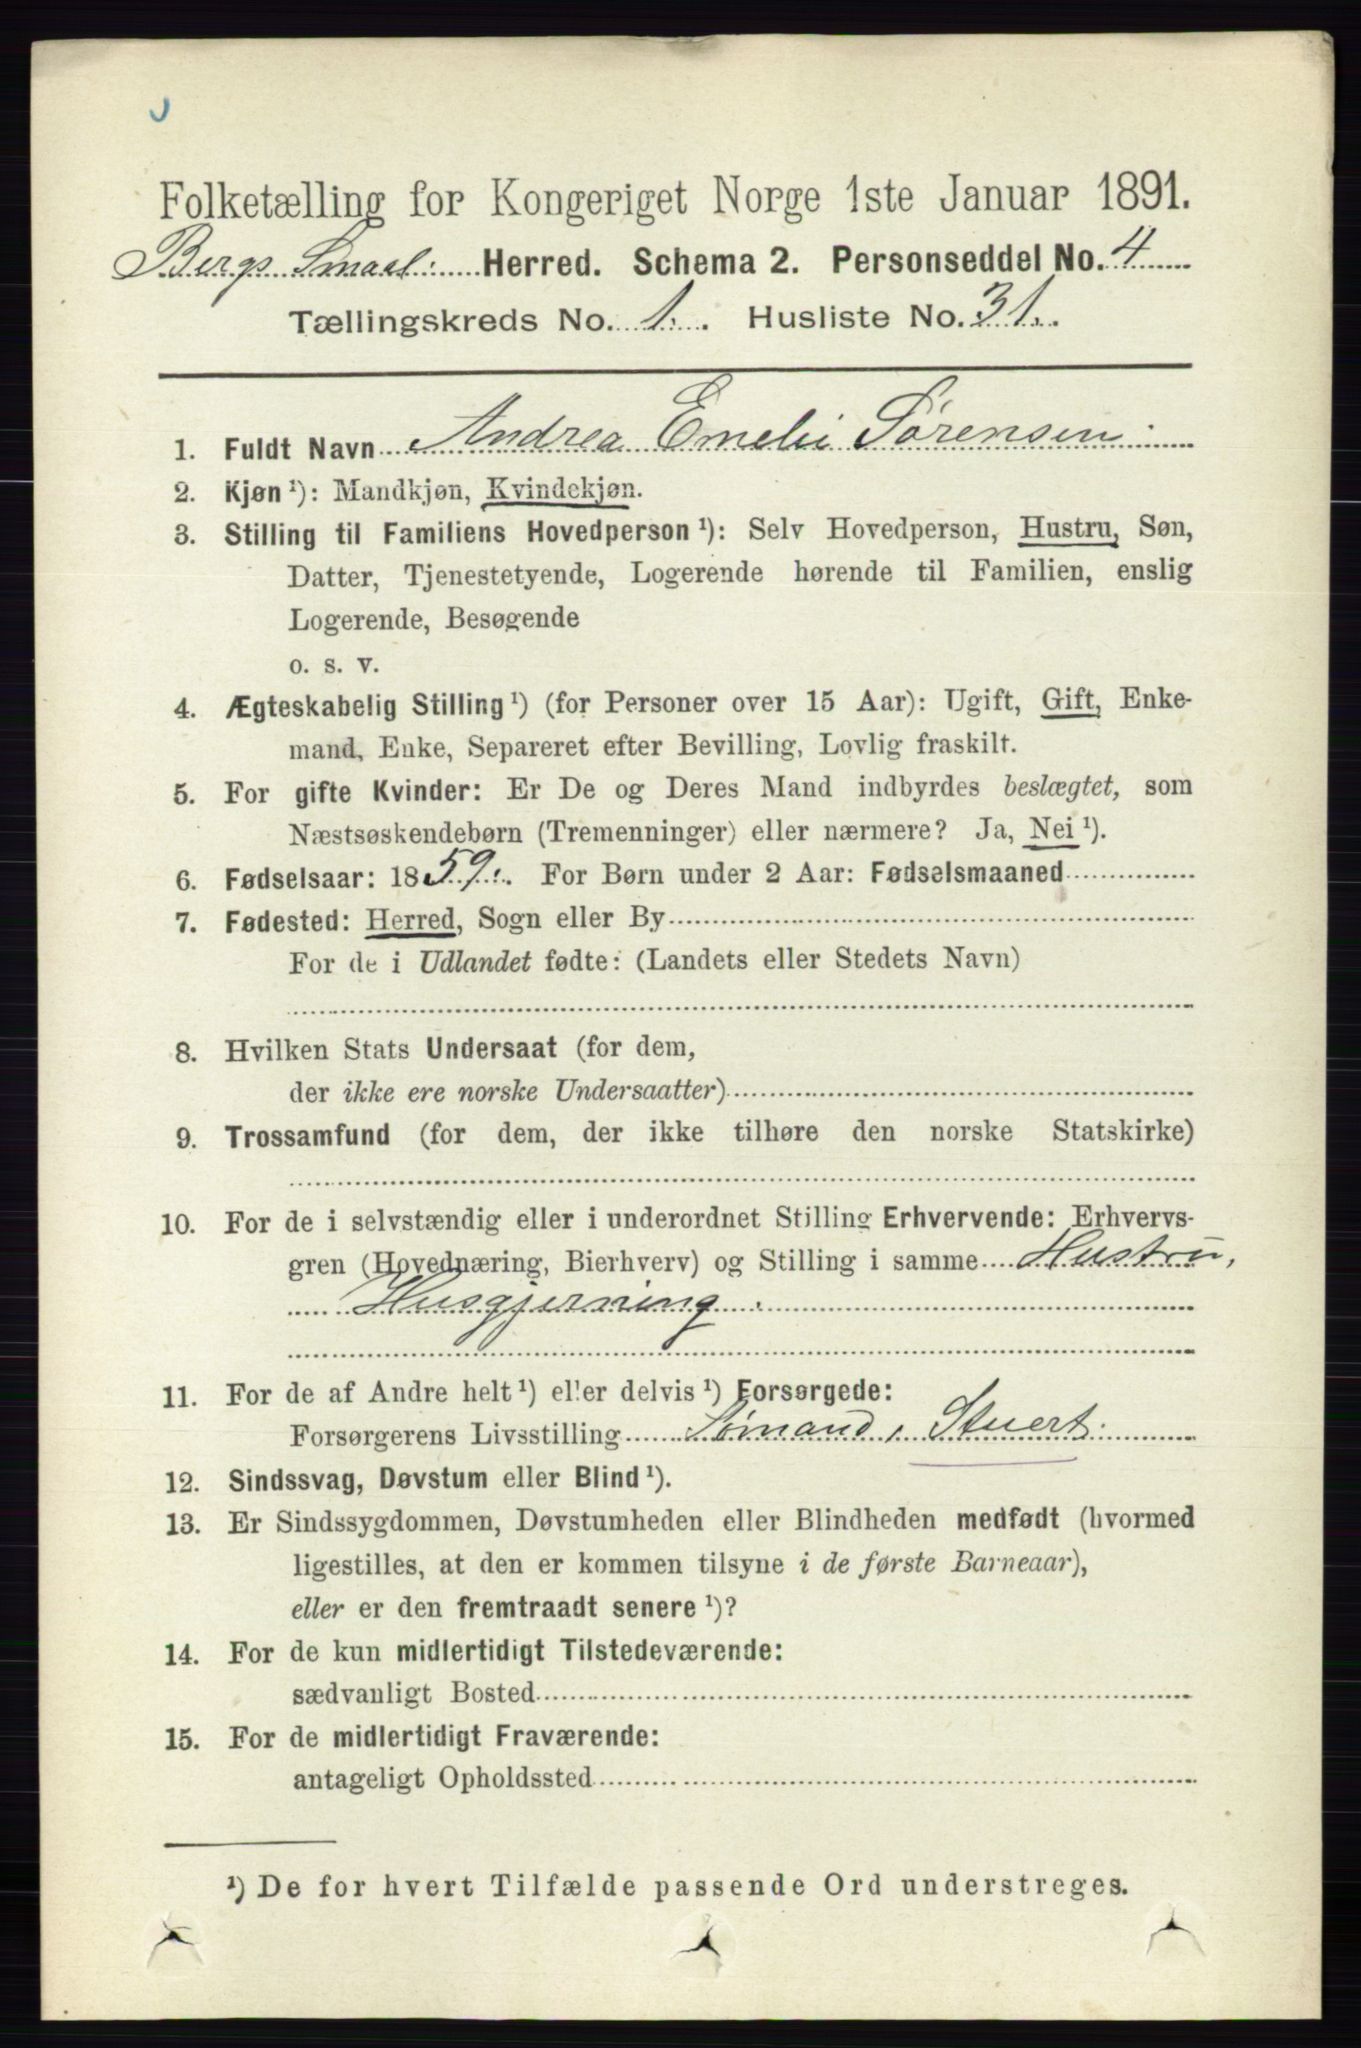 Folketælling for Kongeriget Norge 1ste Januar 1891.
Bergs Smaal. Herred. Schema 2. Personseddel No. 4
Tællingskreds No. 1. Husliste No. 31.
1. Fuldt Navn Andrea Emelie Sørensen
2. Kjøn ¹): Mandkjøn, Kvindekjøn.
3. Stilling til Familiens Hovedperson ¹): Selv Hovedperson, Hustru, Søn,
Datter, Tjenestetyende, Logerende hørende til Familien, enslig
Logerende, Besøgende
o. s. v.
4. Ægteskabelig Stilling ¹) (for Personer over 15 Aar): Ugift, Gift, Enke-
mand, Enke, Separeret efter Bevilling, Lovlig fraskilt.
5. For gifte Kvinder: Er De og Deres Mand indbyrdes beslægtet, som
Næstsøskendebørn (Tremenninger) eller nærmere? Ja, Nei ¹).
6. Fødselsaar: 1859. For Børn under 2 Aar: Fødselsmaaned
7. Fødested: Herred, Sogn eller By
For de i Udlandet fødte: (Landets eller Stedets Navn)
8. Hvilken Stats Undersaat (for dem,
der ikke ere norske Undersaatter)
9. Trossamfund (for dem, der ikke tilhøre den norske Statskirke)
10. For de i selvstændig eller i underordnet Stilling Erhvervende: Erhvervs-
gren (Hovednæring, Bierhverv) og Stilling i samme Hustru,
Husgjerning.
11. For de af Andre helt ¹) eller delvis ¹) Forsørgede:
Forsørgerens Livsstilling Sømand, Stuert.
12. Sindssvag, Døvstum eller Blind ¹).
13. Er Sindssygdommen, Døvstumheden eller Blindheden medfødt (hvormed
ligestilles, at den er kommen tilsyne i de første Barneaar),
eller er den fremtraadt senere ¹)?
14. For de kun midlertidigt Tilstedeværende:
sædvanligt Bosted
15. For de midlertidigt Fraværende:
antageligt Opholdssted
¹) De for hvert Tilfælde passende Ord understreges.